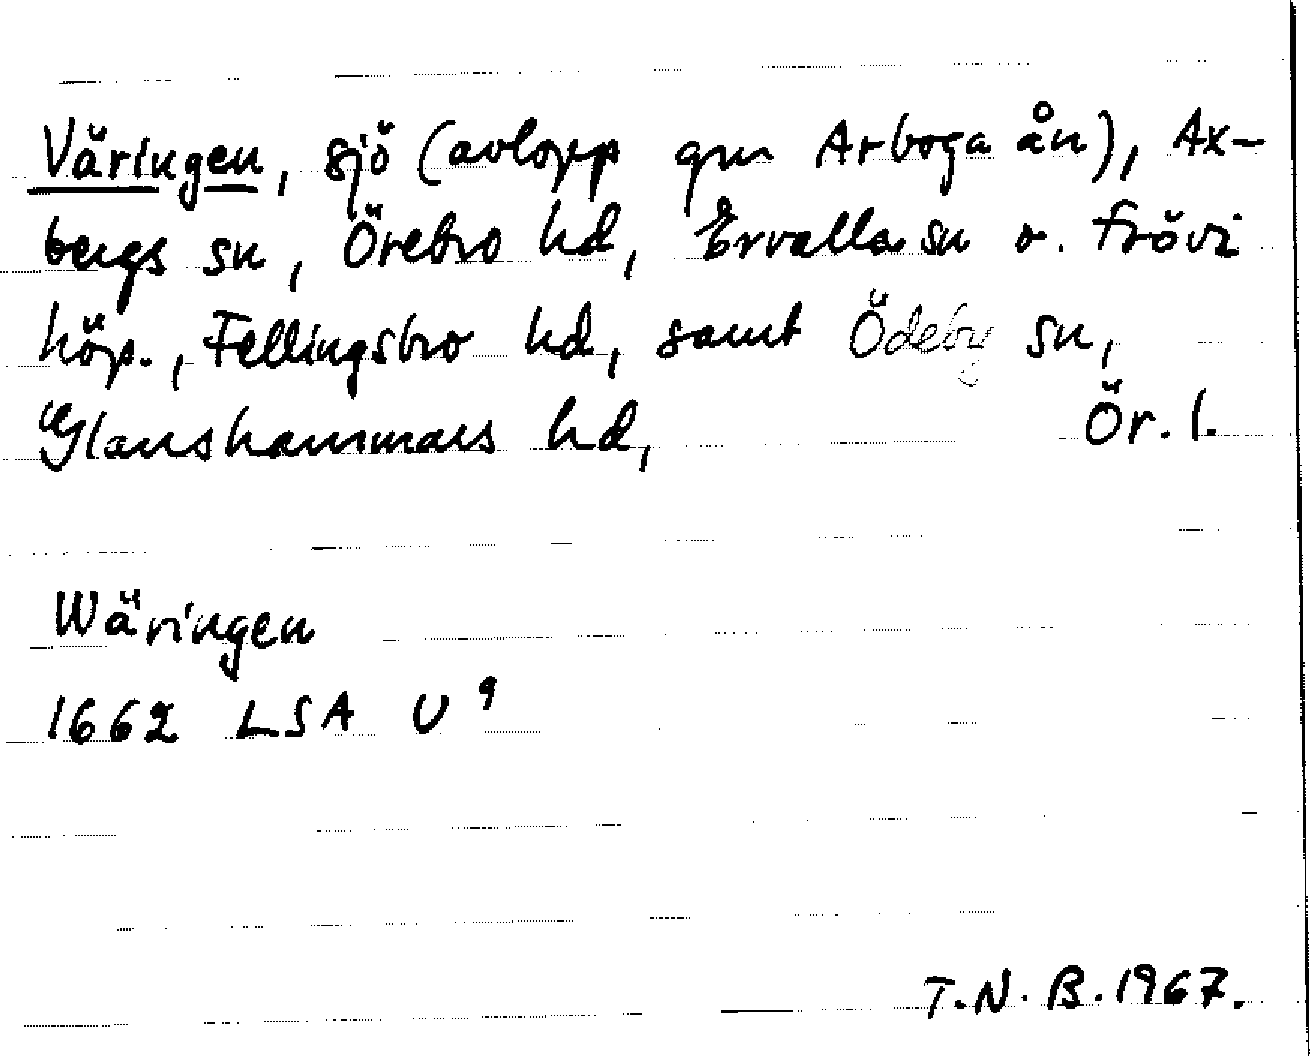 Väringen, sjö (avlopp gm Arboga ån), Ax-
bergs sn, Örebro hd, Ervalla sn o. Frövi
köp., Fellingsbro hd, samt Ödeby sn,
Glanshammars hd, Ör. l.
Wäringen
1662 LSA U⁹
T.N.B. 1967.